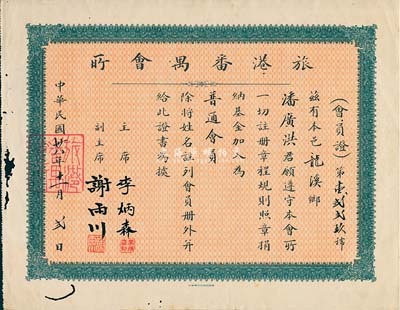 旅港番禺會所
(會員證) 第壹貳貳玖號
茲有本邑龍溪鄉
潘廣洪君願遵守本會所
一切註冊章程規則照章捐
納基金加入為
普通會員
除將姓名註列會員冊外并
給此證書為據
主席 李炳森
副主席 謝雨川
中華民國 年十一月貳日